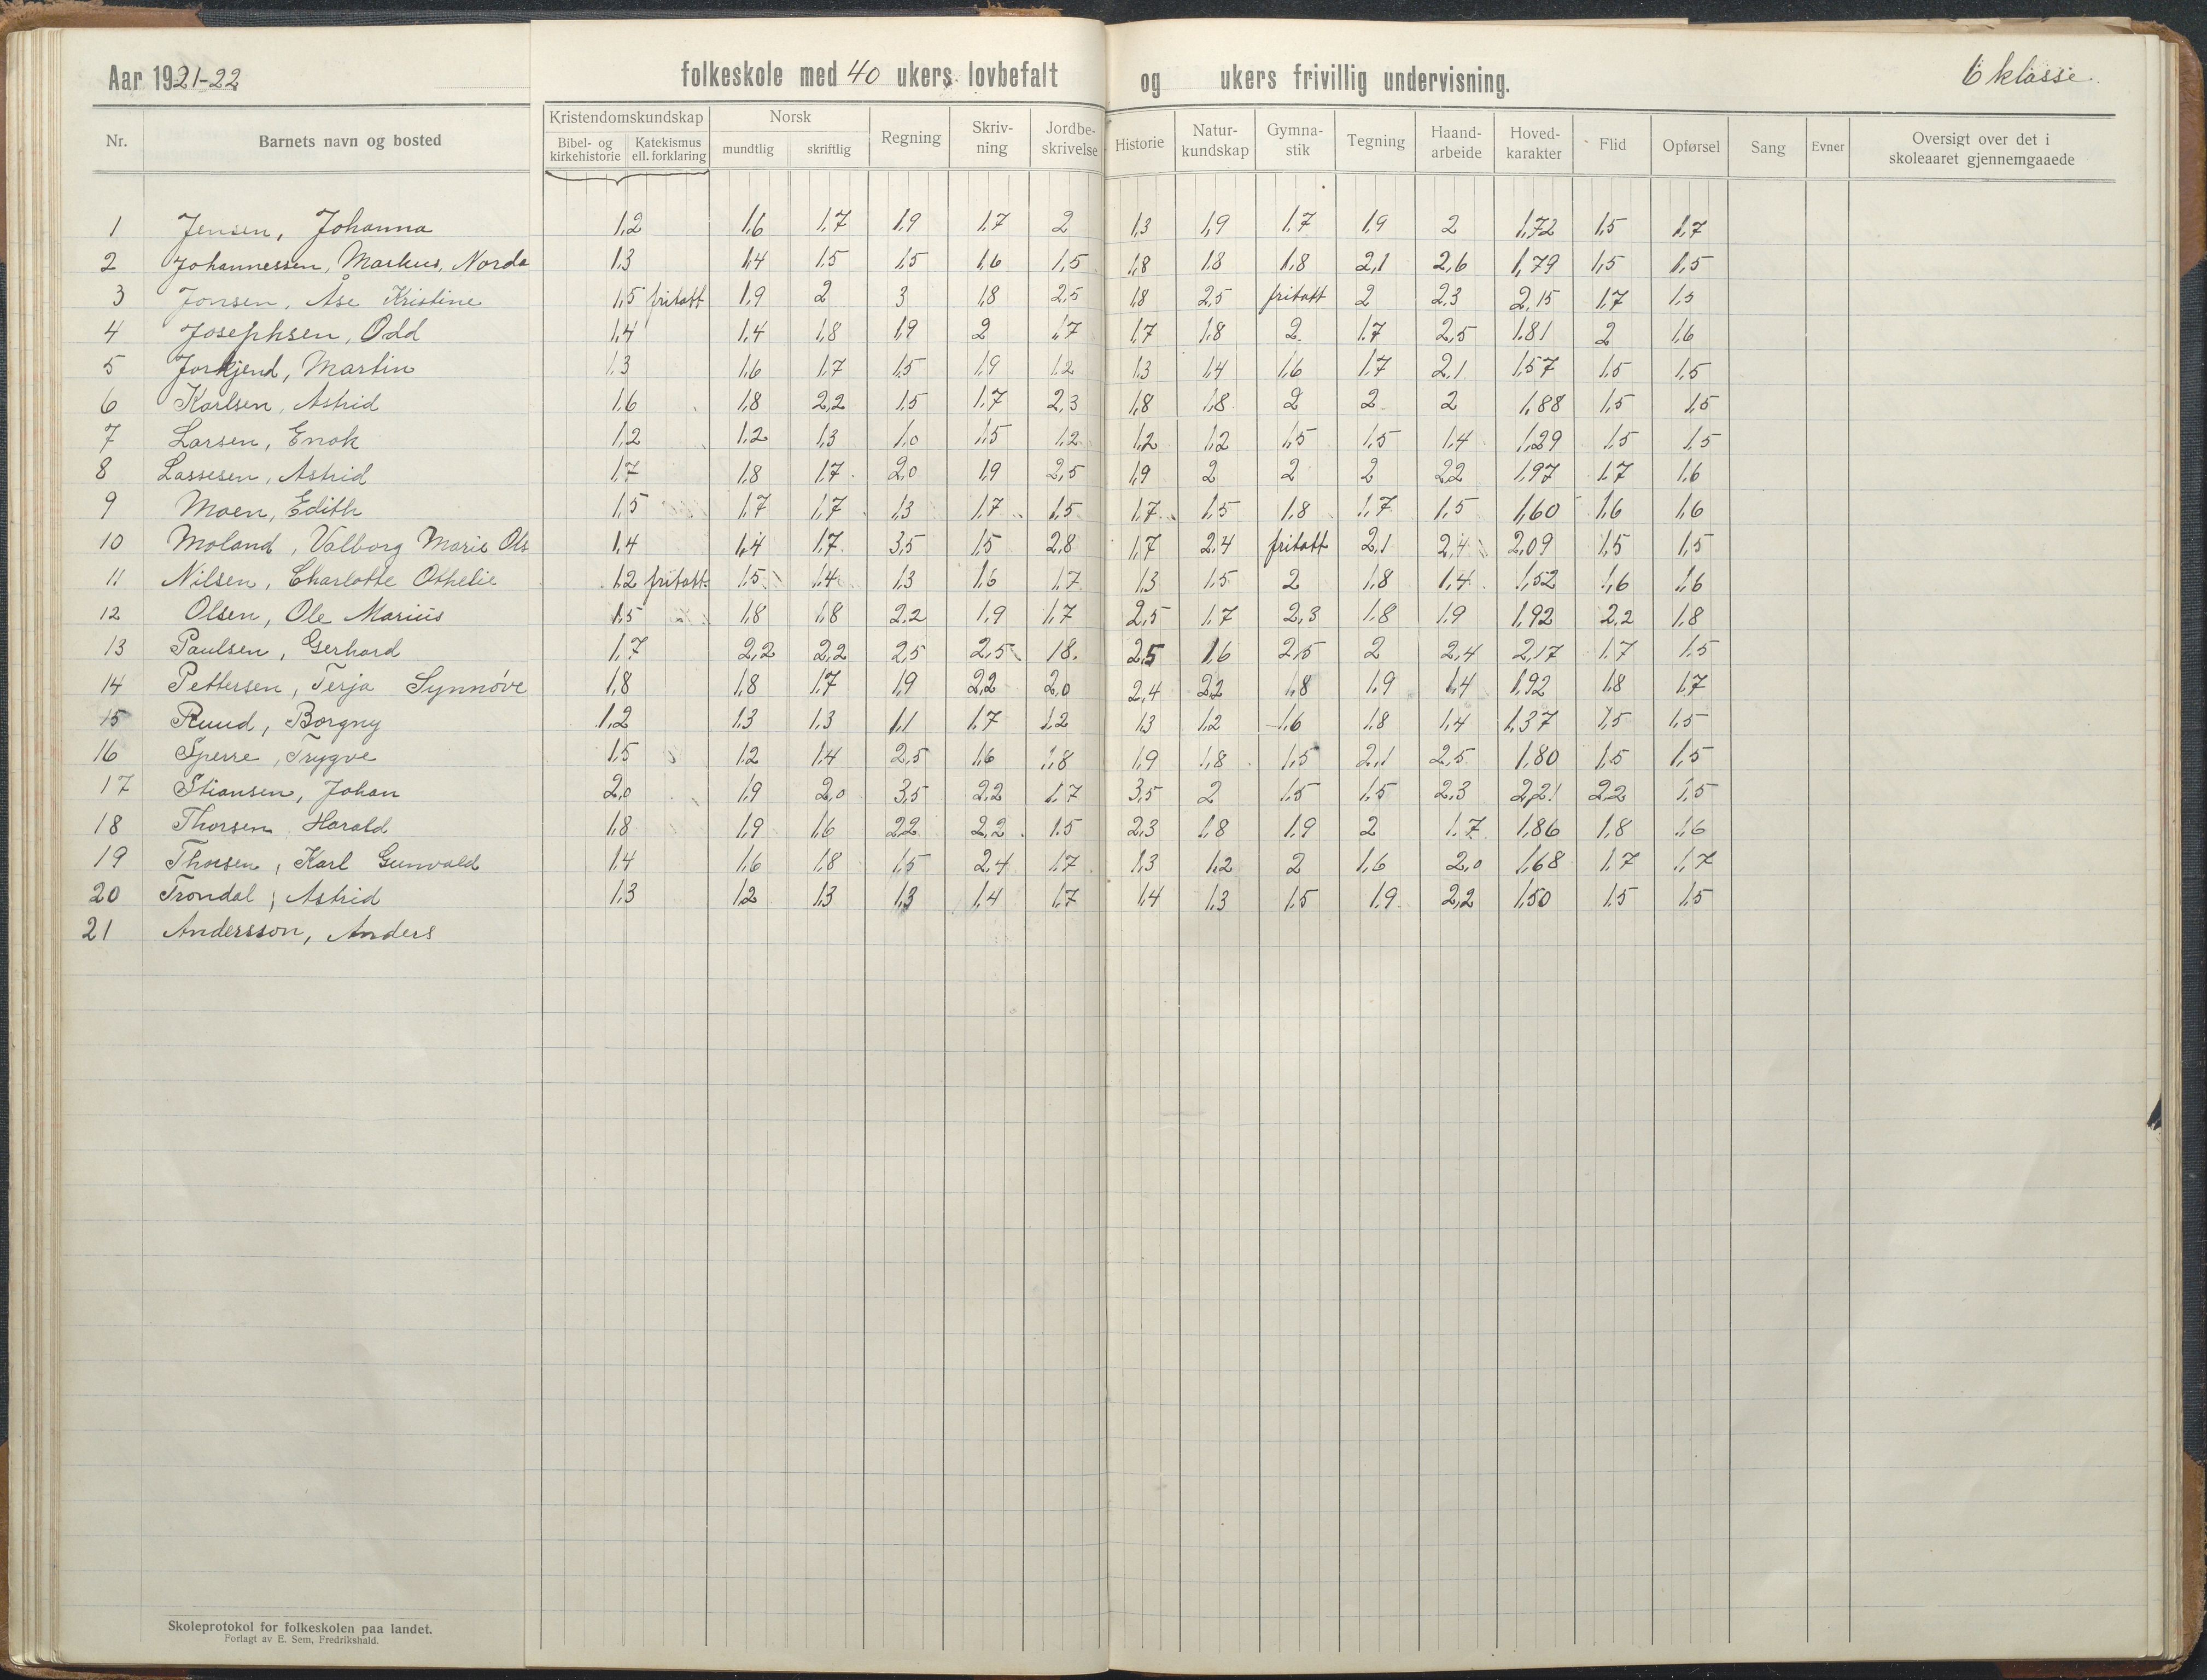 Aar 1921-22 folkeskole med 40 ukers lovbefalt og ukers frivillig undervisning. 6 klasse.
Nr. Barnets navn og bosted Kristendomskundskap Bibel- og kirkehistorie Katekismus ell. forklaring Norsk mundtlig skriftlig Regning Skriv-ning Jordbe-skrivelse Historie Natur-kundskap Gymna-stik Tegning Haand-arbeide Hoved-karakter Flid Opførsel Sang Evner Oversigt over det i skoleaaret gjennemgaaede
1 Jensen, Johanna 1,2 1,6 1,7 1,9 1,7 2 1,3 1,9 1,7 1,9 2 1,72 1,5 1,7
2 Johannessen, Markus, Norda 1,3 1,4 1,5 1,5 1,6 1,5 1,8 1,8 1,8 2,1 2,6 1,79 1,5 1,5
3 Jonsen, Åse Kristine 1,5 fritatt 1,9 2 3 1,8 2,5 1,8 2,5 fritatt 2 2,3 2,15 1,7 1,5
4 Josephsen, Odd 1,4 1,4 1,8 1,9 2 1,7 1,7 1,8 2 1,7 2,5 1,81 2 1,6
5 Jorkjend, Martin 1,3 1,6 1,7 1,5 1,9 1,2 1,3 1,4 1,6 1,7 2,1 1,57 1,5 1,5
6 Karlsen, Astrid 1,6 1,8 2,2 1,5 1,7 2,3 1,8 1,8 2 2 2 1,88 1,5 1,5
7 Larsen, Enok 1,2 1,2 1,3 1,0 1,5 1,2 1,2 1,2 1,5 1,5 1,4 1,29 1,5 1,5
8 Lassesen, Astrid 1,7 1,8 1,7 2,0 1,9 2,5 1,9 2 2 2 2,2 1,97 1,7 1,6
9 Moen, Edith 1,5 1,7 1,7 1,3 1,7 1,5 1,7 1,5 1,8 1,7 1,5 1,60 1,6 1,6
10 Moland, Valborg Marie Ols 1,4 1,4 1,7 3,5 1,5 2,8 1,7 2,4 fritatt 2,1 2,4 2,09 1,5 1,5
11 Nilsen, Charlotte Othelie 1,2 fritatt 1,5 1,4 1,3 1,6 1,7 1,3 1,5 2 1,8 1,4 1,52 1,6 1,6
12 Olsen, Ole Marius 1,5 1,8 1,8 2,2 1,9 1,7 2,5 1,7 2,3 1,8 1,9 1,92 2,2 1,8
13 Paulsen, Gerhard 1,7 2,2 2,2 2,5 2,5 1,8 2,5 1,6 2,5 2 2,4 2,17 1,7 1,5
14 Pettersen, Terja Synnöve 1,8 1,8 1,7 1,9 2,2 2,0 2,4 2,2 1,8 1,9 1,4 1,92 1,8 1,7
15 Ruud, Borgny 1,2 1,3 1,3 1,1 1,7 1,2 1,3 1,2 1,6 1,8 1,4 1,37 1,5 1,5
16 Sperre, Trygve 1,5 1,2 1,4 2,5 1,6 1,8 1,9 1,8 1,5 2,1 2,5 1,80 1,5 1,5
17 Stiansen, Johan 2,0 1,9 2,0 3,5 2,2 1,7 3,5 2 1,5 1,5 2,3 2,21 2,2 1,5
18 Thorsen Harald 1,8 1,9 1,6 2,2 2,2 1,5 2,3 1,8 1,9 2 1,7 1,86 1,8 1,6
19 Thorsen, Karl Gunvald 1,4 1,6 1,8 1,5 2,4 1,7 1,3 1,2 2 1,6 2,0 1,68 1,7 1,7
20 Trondal, Astrid 1,3 1,2 1,3 1,3 1,4 1,7 1,4 1,3 1,5 1,9 2,2 1,50 1,5 1,5
21 Andersson, Anders
Skoleprotokol for folkeskolen paa landet.
Forlagt av E. Sem, Fredrikshald.